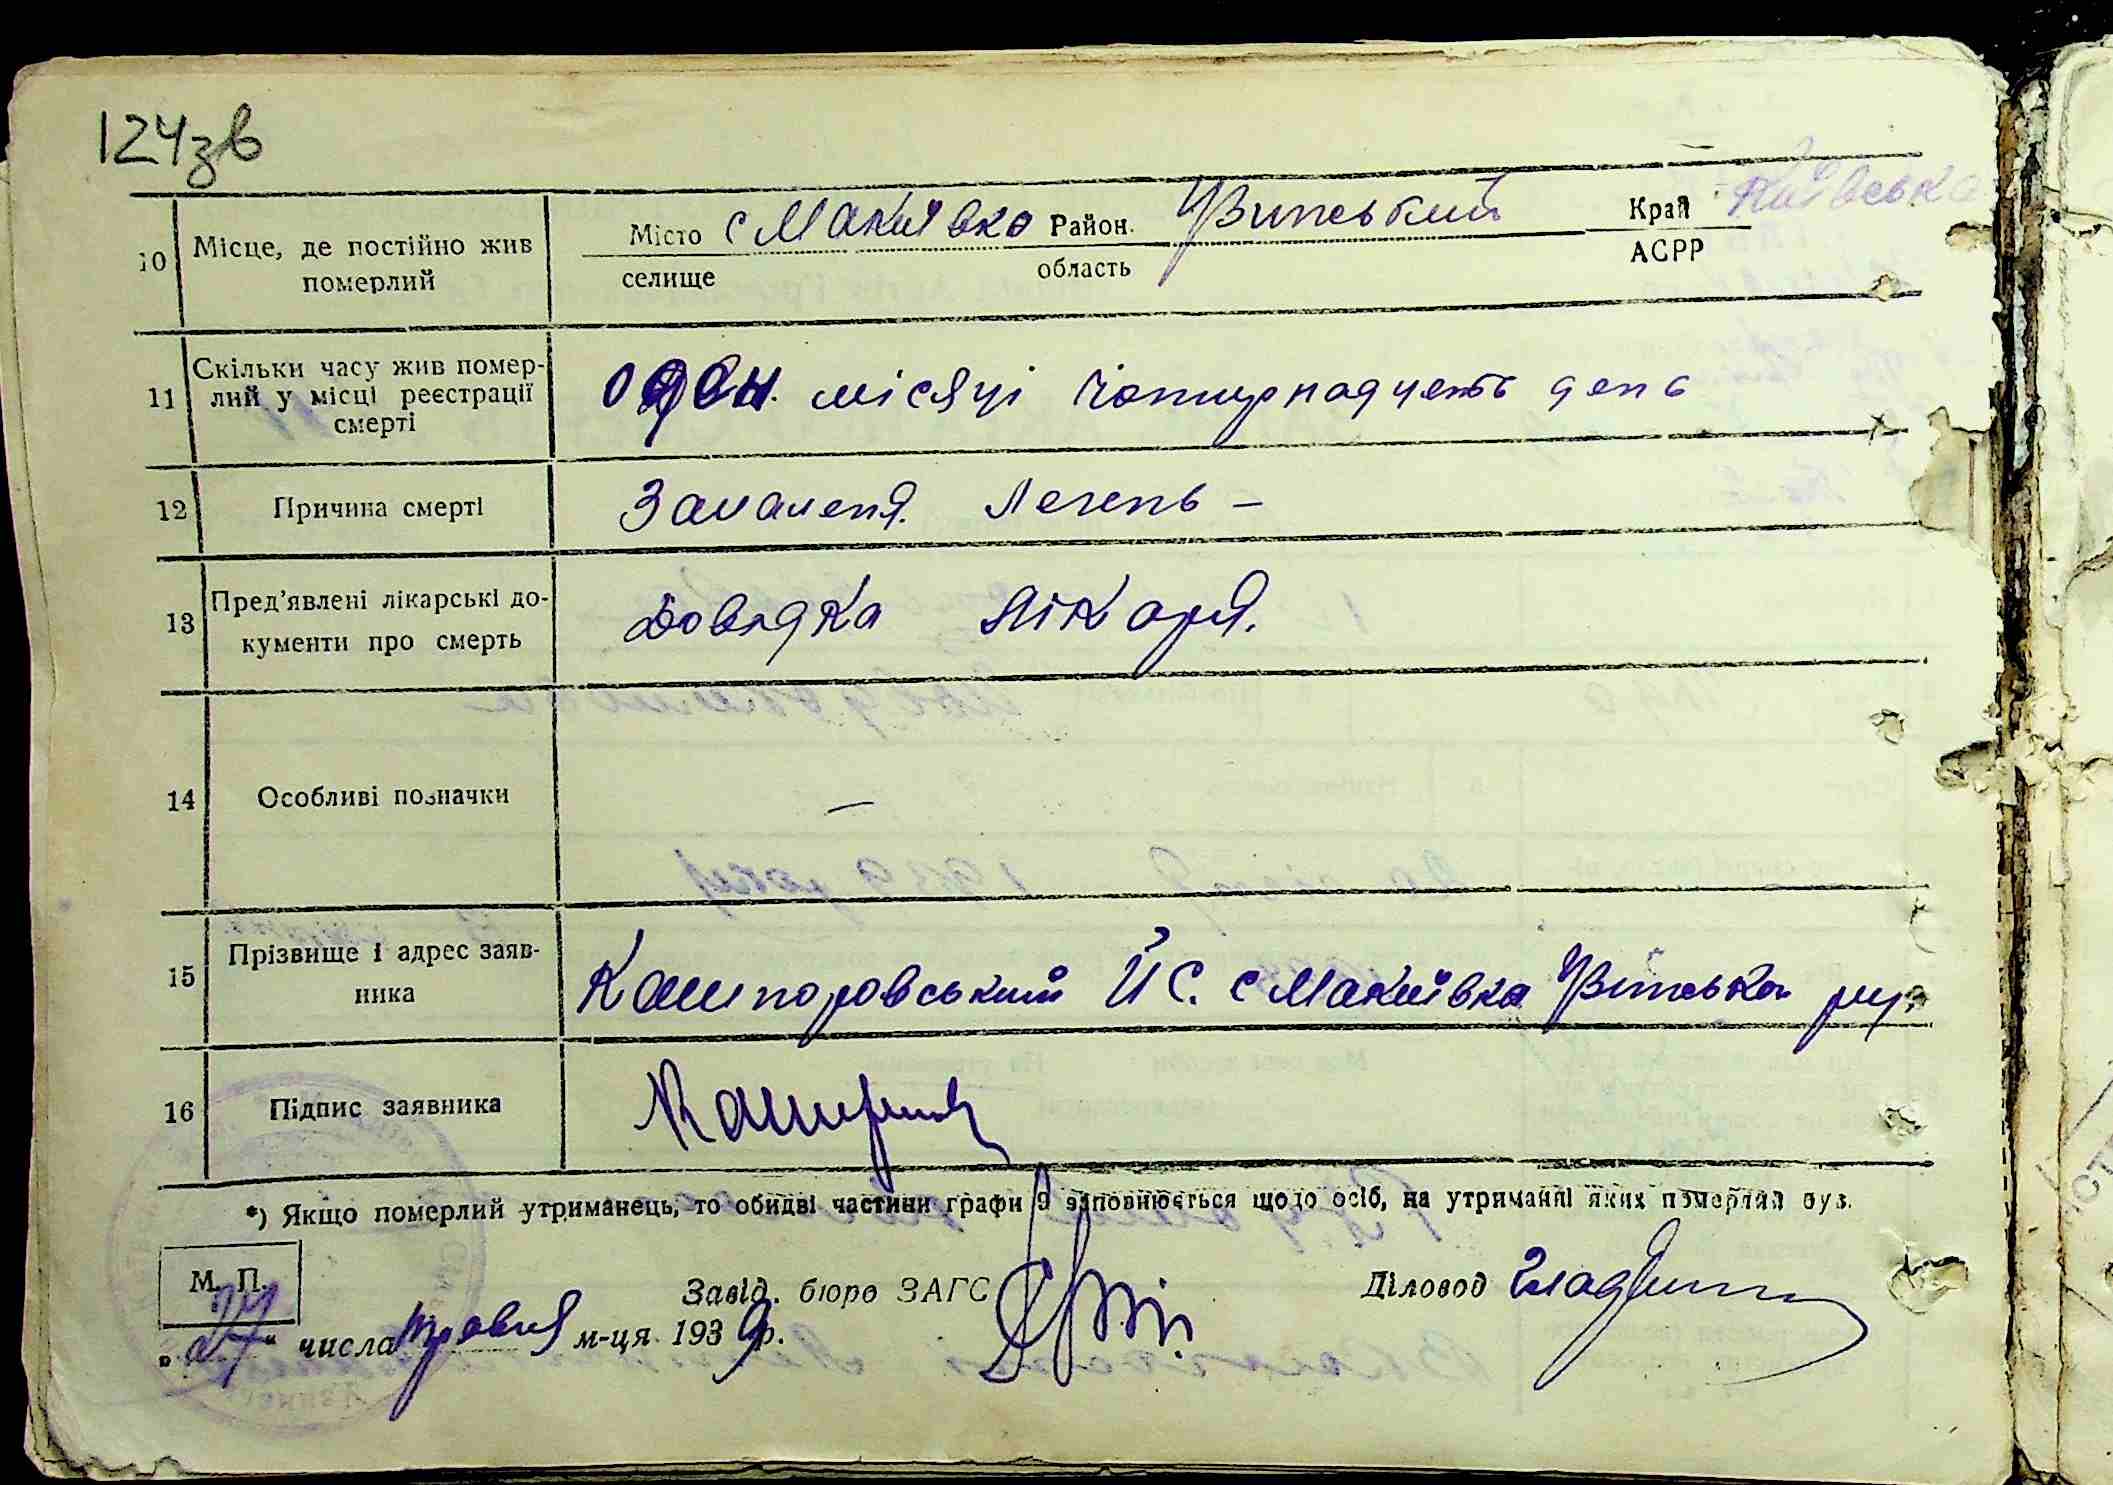 124зв
10 Місце, де постійно жив померлий Місто с Макиївка Район Київська Край
селище область АСРР
11 Скільки часу жив помер-
лий у місці реєстрації
смерті
один місяці чотирнадцять день
12 Причина смерті Запаленя Легень –
13 Пред'явлені лікарські до-
кументи про смерть
Довядка лікаря.
14 Особливі позначки —
15 Прізвище і адрес заяв-
ника
Кашпоровський Й С. с Макиївка
16 Підпис заявника
*) Якщо померлий утриманець, то обидві частини графи 9 заповнюється щодо осіб, на утриманні яких померлий був.
М. П. Завід. бюро ЗАГС Діловод
„27“ числа травня м-ця 1939 р.